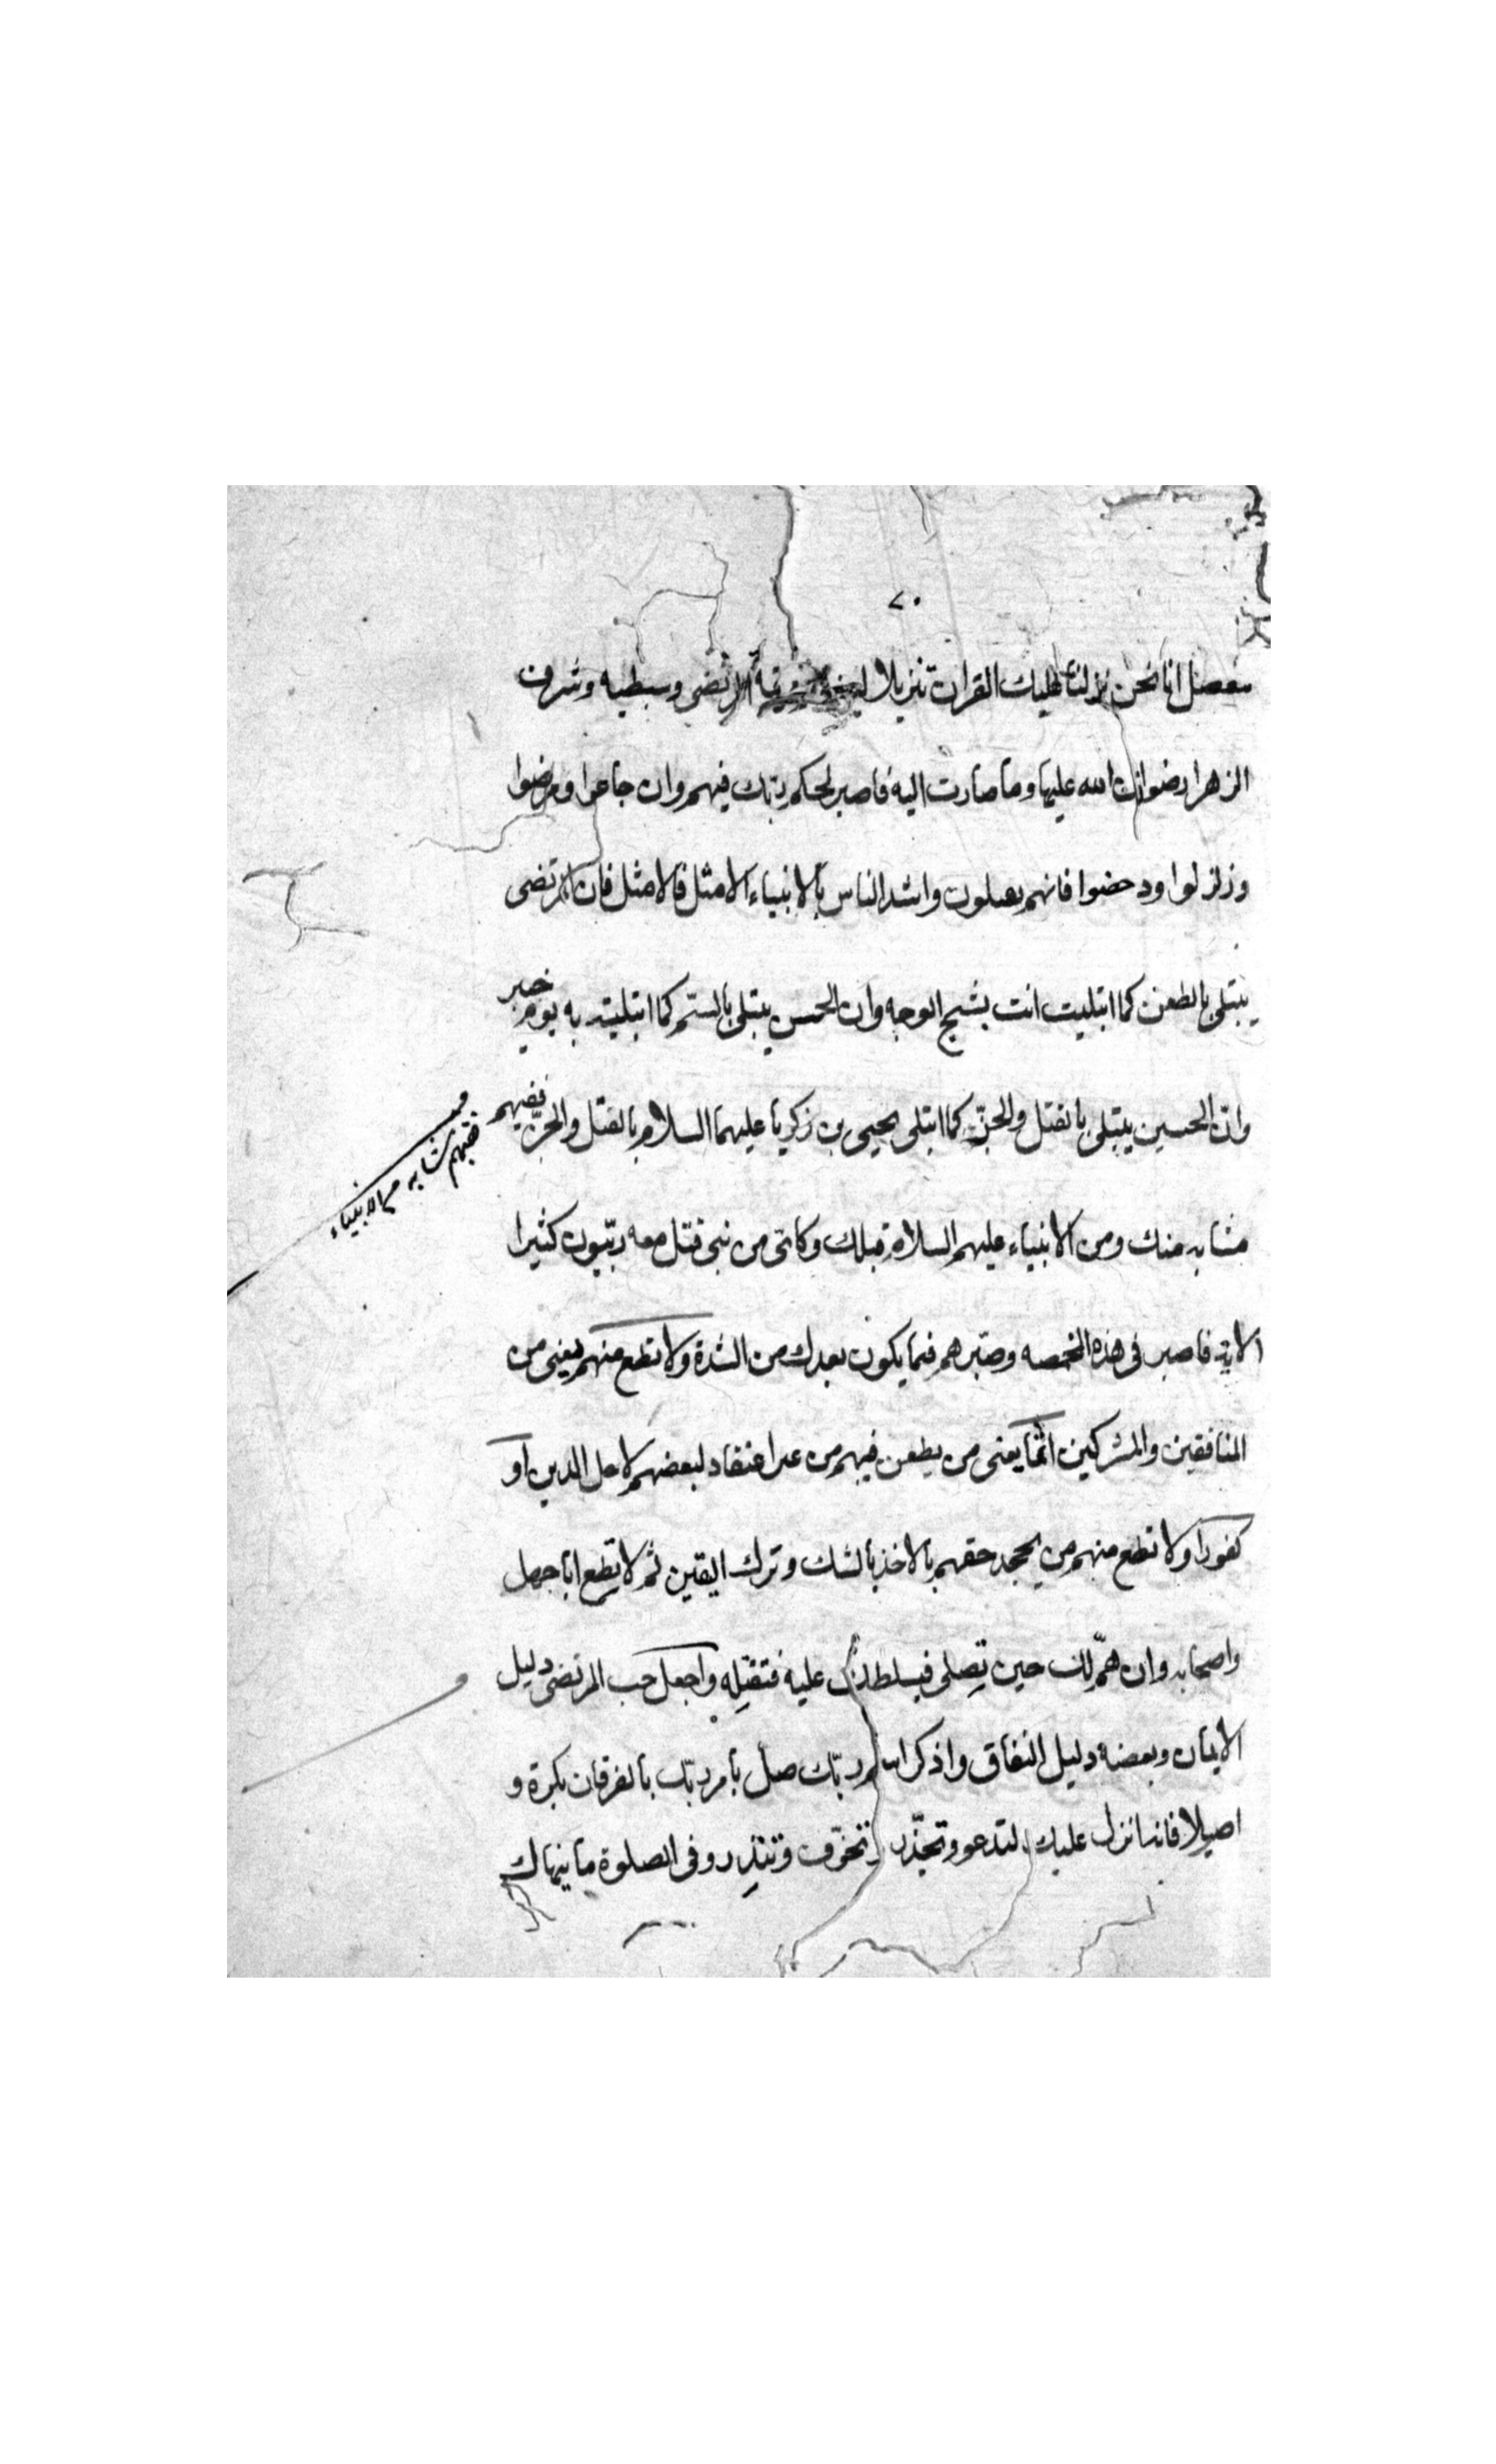 ٧٠
مفصل انا نحن نزلنا عليك القران تنزيلا المرتضى وسبطيه وشرف
الزهرا رضوان الله عليها وما صارت اليه فاصبر لحكم ربك فيهم وان جاعوا ومرضوا
وزلزلوا ودحضوا فانهم يعملون واشد الناس بالانبياء الامثل فالامثل فان المرتضى
يبتلى بالطعن كما ابتليت انت بشج الوجه وان الحسن يبتلى بالسم كما ابتليت به يوم خيبر
وان الحسين يبتلى بالقتل والحز كما ابتلى يحيى بن زكريا عليهما السلام بالقتل والحز ففيهم
مشابه منك ومن الانبياء عليهم السلام قبلك وكاى من نبى قتل معه ربيون كثيرا
الاية فاصبر فى هذه المخمصه وصبرهم فيما يكون بعدك من الشدة ولا تطع منهم يعنى من
المنافقين والمشركين اثما يعنى من يطعن فيهم من اعتقاد لبعضهم لاجل الدين او
كفورا ولا تطع منهم من يجحد حقهم بالاخذ بالشك وترك اليقين ثم لا تطع ابا جهل
واصحابه وان هم لك حين تصلى فيسلطنك عليه فتقتله واجعل حب المرتضى دليل
الايمان وبعضه دليل النفاق واذكر اسم ربك صل بامر ربك بالفرقان بكرة و
اصيلا فانما نزل عليك لتدعو وتحذر تخوف وتنذر وفى الصلوة ما ينهاك
ففيهم مشابه من الانبياء